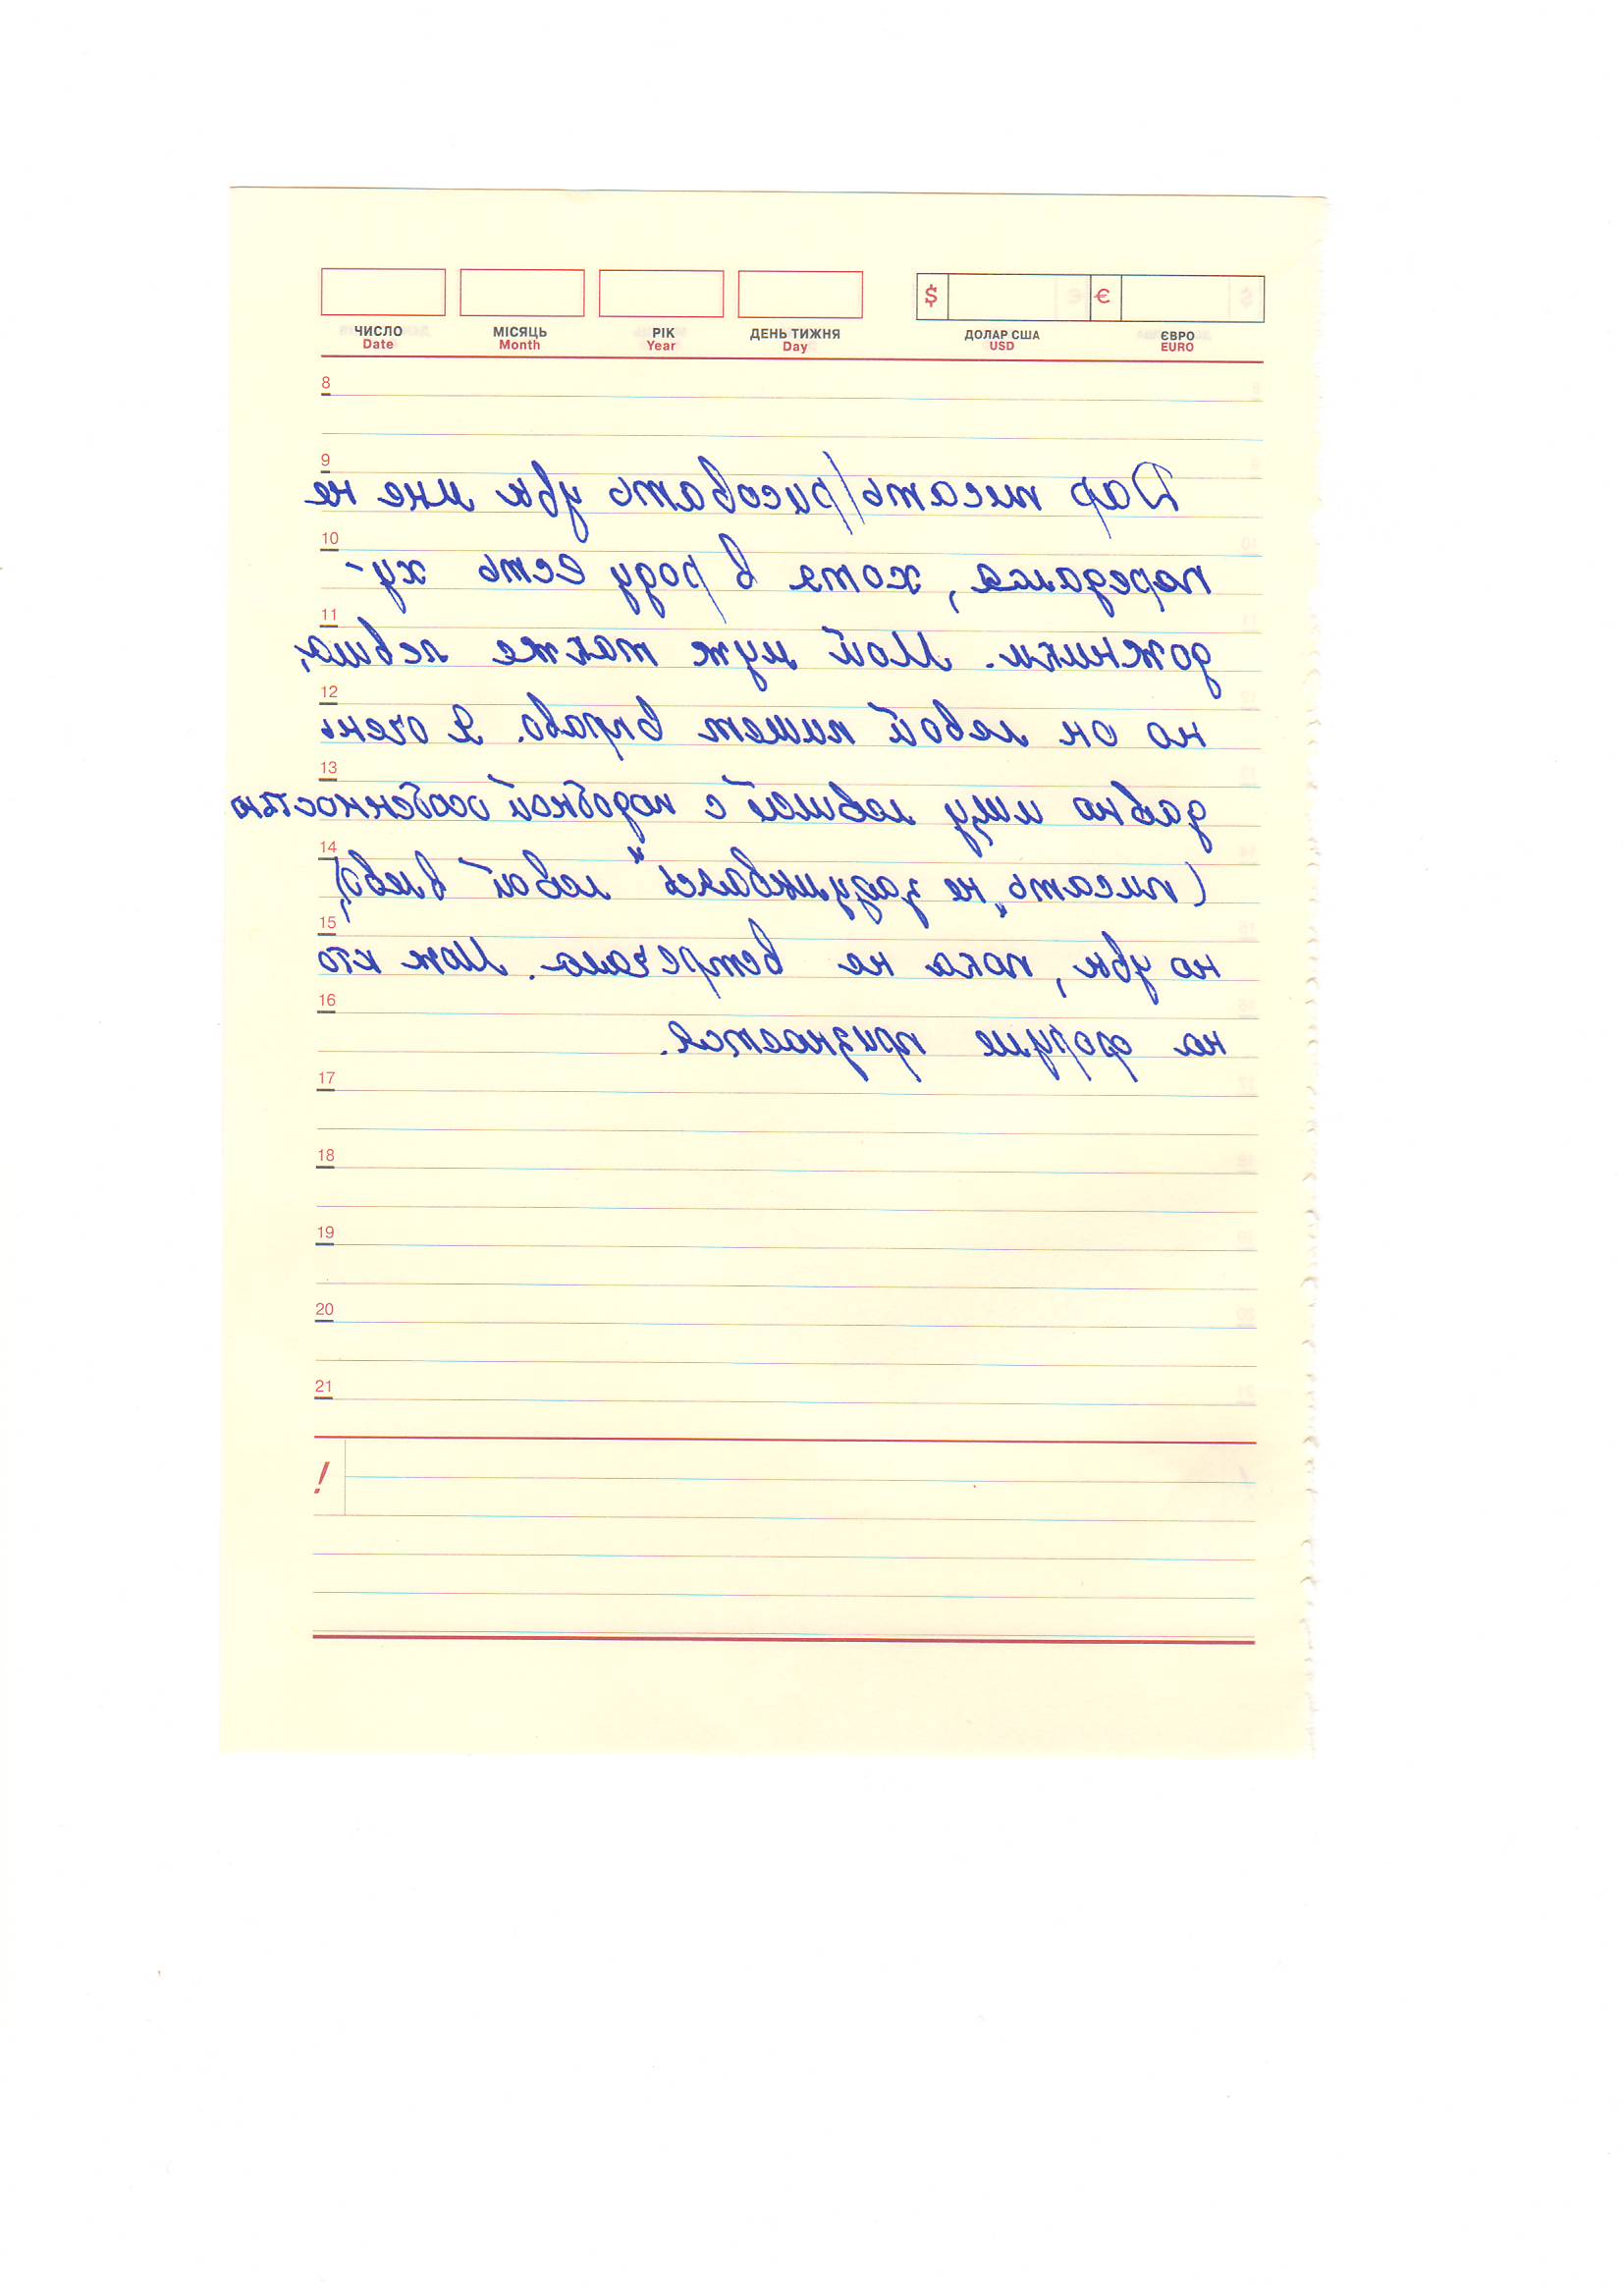 $ €
ЧИСЛО МІСЯЦЬ РІК ДЕНЬ ТИЖНЯ ДОЛАР США ЄВРО
Date Month Year Day USD EURO
8
9
Дар писать/рисовать увы мне не
10
передался, хотя в роду есть ху-
11
дожники. Мой муж также левша,
12
но он левой пишет вправо. Я очень
13
давно ищу левшей с подобной особенностью
14
(писать „не задумываясь" левой влево),
15
но увы, пока не встречала. Мож кто
16
на форуме признается.
17
18
19
20
21
!